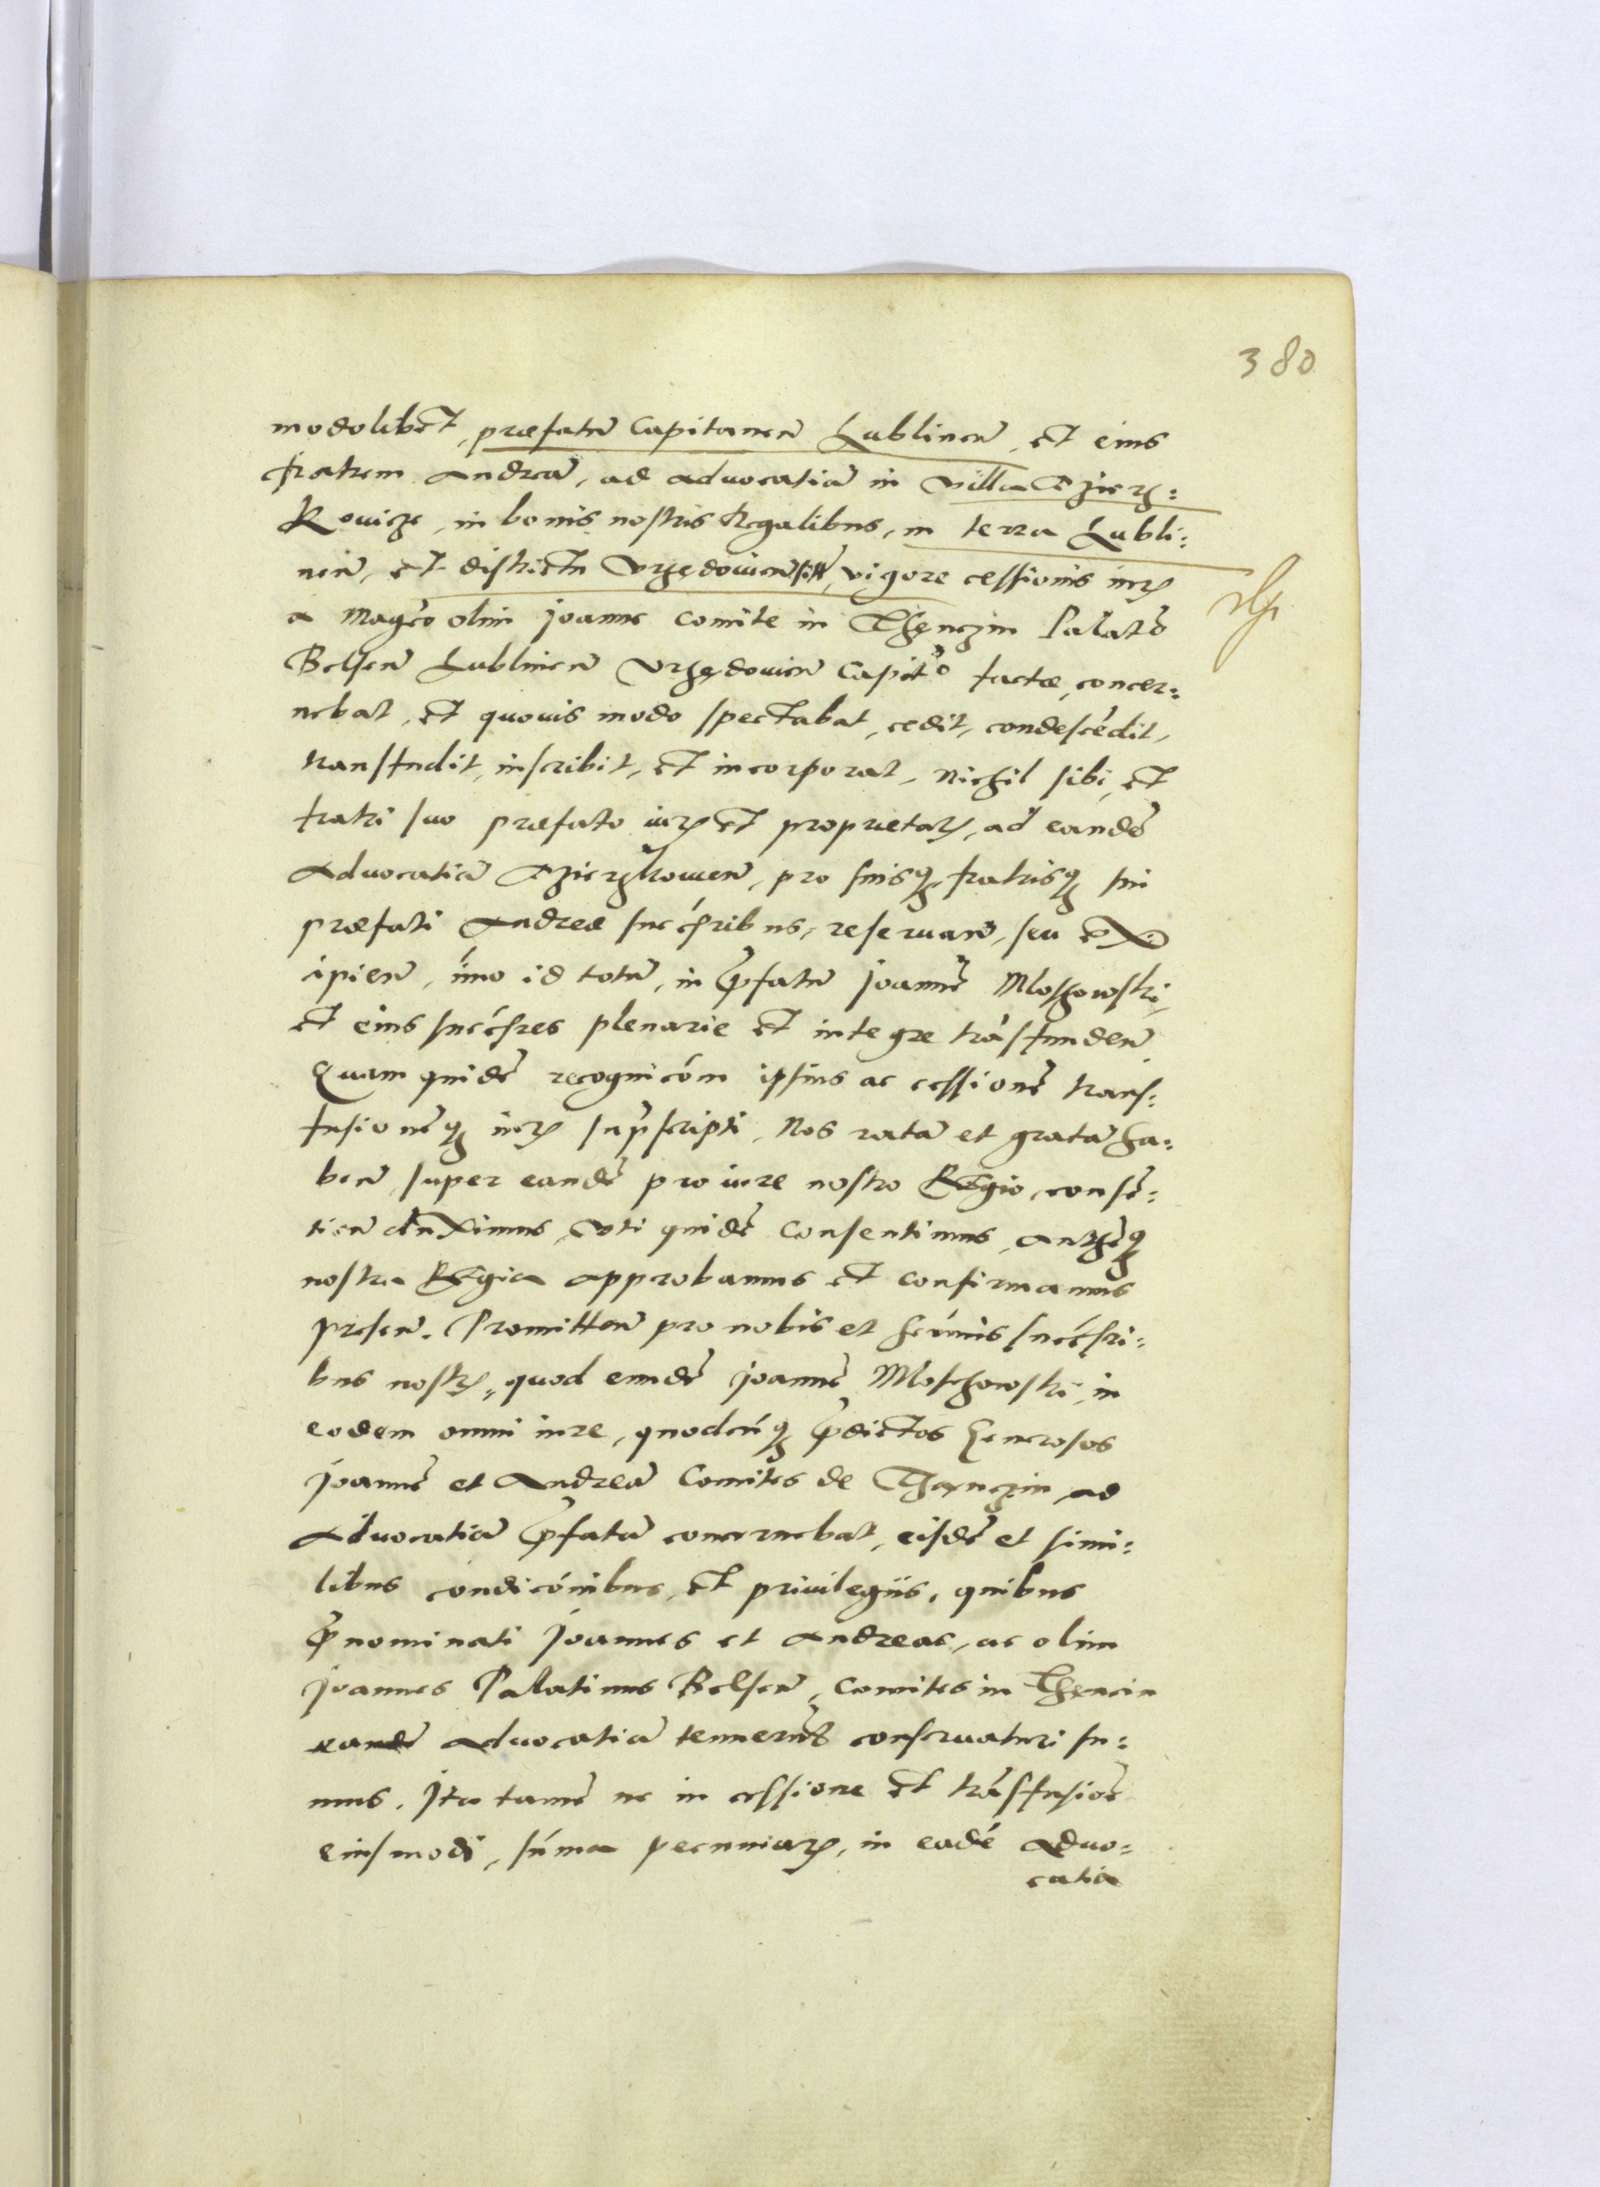 380
modolibet, præfatũ Capitaneũ Lublinen̄, et eius
fratrem Andreã, ad aduocatiã in villa Dzierz=
kowicze, in bonis nostris Regalibus, in terra Lubli=
nen̄, et districtu Vrzędouien̄, vigore cessionis iur̄
a Magco olim Joanne Comite in Thęnczin Palatõ
Belsen̄ Lublinen̄ Vrzędouien̄ Capitõ factæ, concer=
nebat, et quouis modo spectabat, cedit, condescẽdit,
transfudit, inscribit, et incorporat, nichil sibi, et
fratri suo præfato iur̄ et proprietat̄, ad eandẽ
Aduocatiã Dzierzkouien̄, pro suisq, fratrisq sui
præfati Andreæ succ̃sribus, reseruan̄, seu ex
cipien̄, ĩmo id totũ, in p̄fatũ Joannẽ Mloschowski,
et eius succ̃sres plenarie et integre trãsfunden̄
Quam quidẽ recognicõm ipsius ac cessionẽ trans=
fusionẽq iur̄ sup̄scripti, Nos ratã et gratã ha=
ben̄, super eandẽ pro iure nostro Regio, consẽ=
tien̄ duximus, Vti quidẽ Consentimus, authẽq
nostra Regia approbamus et confirmamus
presen̄. Promitten̄ pro nobis et Serẽmis succ̃sri=
bus nostr̄, quod eundẽ Joannẽ Mloschowski, in
eodem omni iure, quodcũq p̄dictos Generosos
Joannẽ et Andreã Comites de Thanczin ad
Aduocatiã p̄fatã concernebat, eisdẽ et simi=
libus condicõnibus, et privilegiis, quibus
p̄nominati Joannes et Andreas, ac olim
Joannes Palatinus Belsen̄, Comites in Thęncin
eandẽ aduocatiã tenuerũt conseruaturi su=
mus. Ita tamẽ ne in cessione et trãsfusiõe
eiusmodi, sũma pecuniar̄, in eadẽ Aduo=
catia